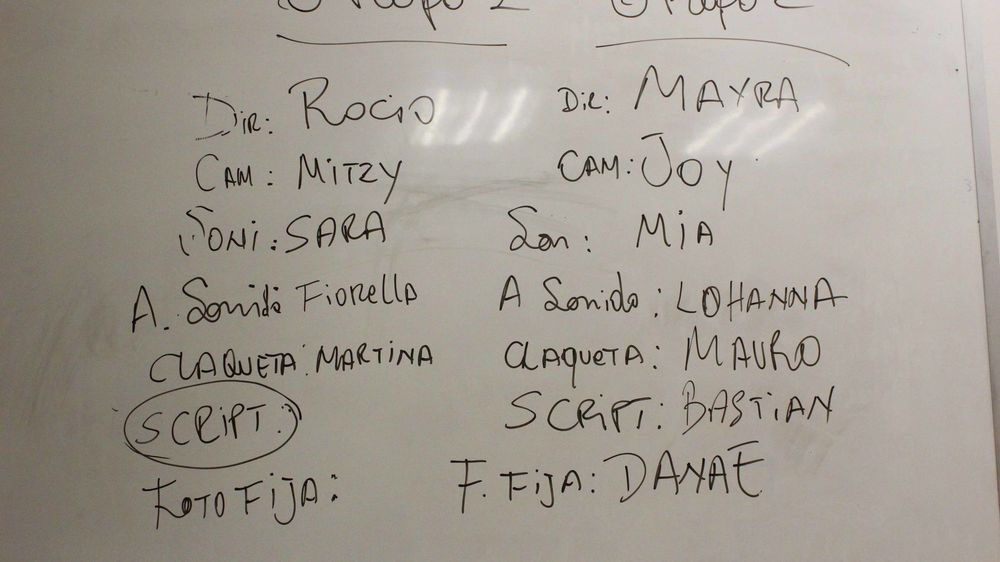 Grupo 1
Dir: ROCIO
CAM: MITZY
SONI: SARA
A. Sonido Fiorella
CLAQUETA: MARTINA
SCRIPT:
FOTO FIJA:
Grupo 2
Dir: MAYRA
CAM: JOY
Son: MIA
A Sonido: LOHANNA
CLAQUETA: MAURO
SCRIPT: BASTIAN
F. FIJA: DANAE